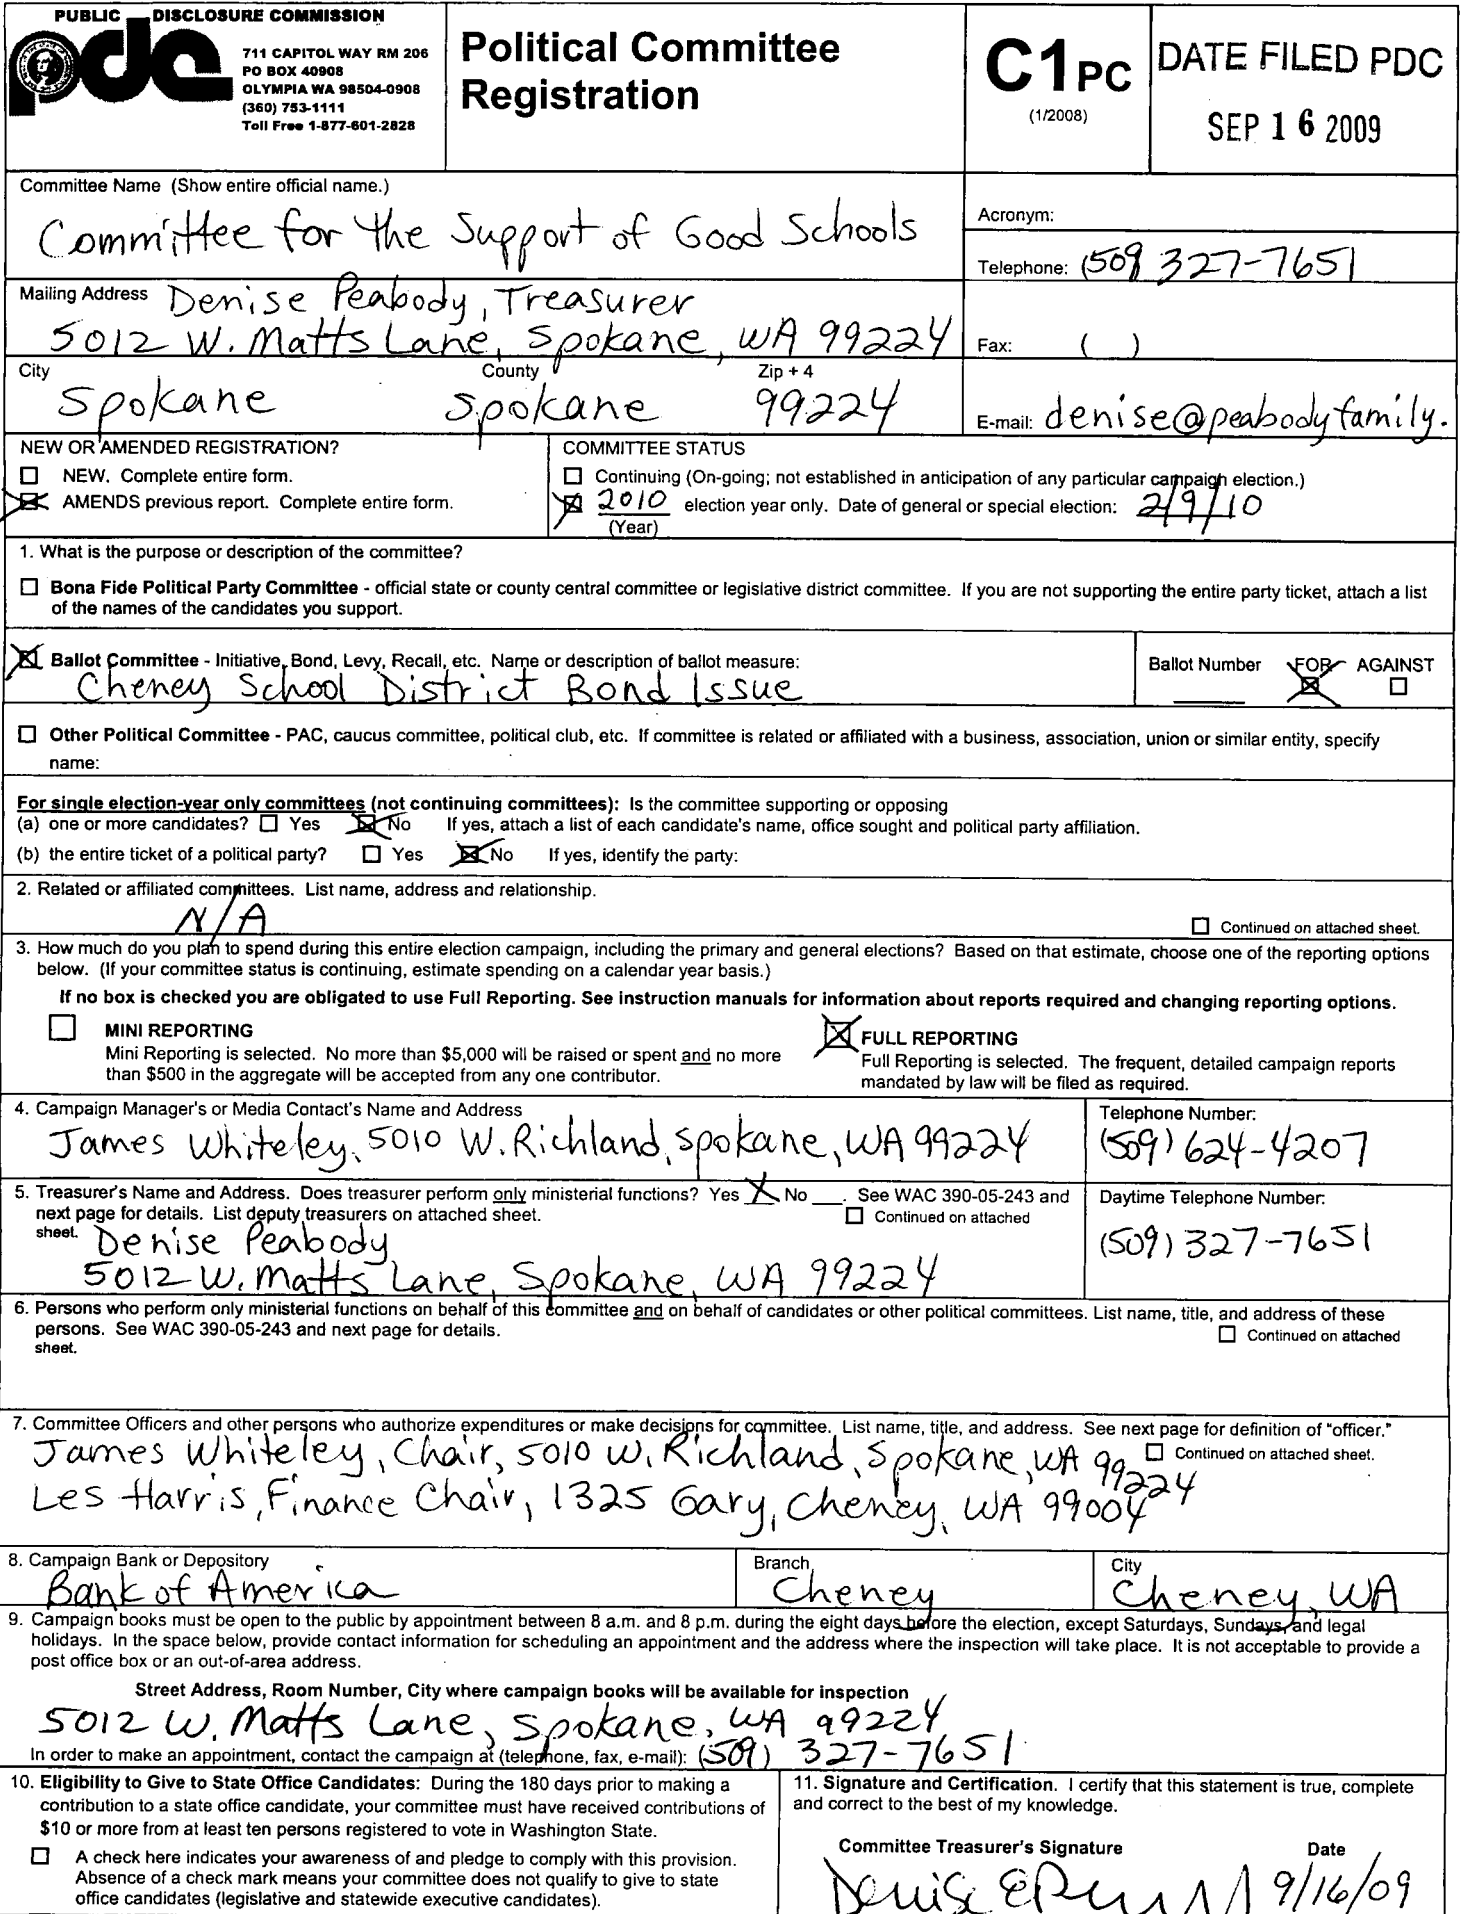 PUBLIC DISCLOSURE COMMISSION
pdc
711 CAPITOL WAY RM 206
PO BOX 40908
OLYMPIA WA 98504-0908
(360) 753-1111
Toll Free 1-877-601-2828
Political Committee
Registration
C1 PC
(1/2008)
DATE FILED PDC
SEP 16 2009
Committee Name (Show entire official name.)
Committee for the Support of Good Schools
Acronym:
Telephone: (509) 327-7651
Mailing Address Denise Peabody, Treasurer
5012 W. Matts Lane, Spokane, WA 99224
Fax: ( )
City County Zip + 4
Spokane Spokane 99224
E-mail: denise@peabodyfamily.
NEW OR AMENDED REGISTRATION?
NEW. Complete entire form.
AMENDS previous report. Complete entire form.
COMMITTEE STATUS
Continuing (On-going; not established in anticipation of any particular campaign election.)
2010 election year only. Date of general or special election: 2/9/10
(Year)
1. What is the purpose or description of the committee?
Bona Fide Political Party Committee - official state or county central committee or legislative district committee. If you are not supporting the entire party ticket, attach a list
of the names of the candidates you support.
Ballot Committee - Initiative, Bond, Levy, Recall, etc. Name or description of ballot measure:
Cheney School District Bond Issue
Ballot Number FOR AGAINST
Other Political Committee - PAC, caucus committee, political club, etc. If committee is related or affiliated with a business, association, union or similar entity, specify
name:
For single election-year only committees (not continuing committees): Is the committee supporting or opposing
(a) one or more candidates? Yes No If yes, attach a list of each candidate's name, office sought and political party affiliation.
(b) the entire ticket of a political party? Yes No If yes, identify the party:
2. Related or affiliated committees. List name, address and relationship.
N/A
Continued on attached sheet.
3. How much do you plan to spend during this entire election campaign, including the primary and general elections? Based on that estimate, choose one of the reporting options
below. (If your committee status is continuing, estimate spending on a calendar year basis.)
If no box is checked you are obligated to use Full Reporting. See instruction manuals for information about reports required and changing reporting options.
MINI REPORTING
Mini Reporting is selected. No more than $5,000 will be raised or spent and no more
than $500 in the aggregate will be accepted from any one contributor.
FULL REPORTING
Full Reporting is selected. The frequent, detailed campaign reports
mandated by law will be filed as required.
4. Campaign Manager's or Media Contact's Name and Address
James Whiteley, 5010 W. Richland, Spokane, WA 99224
Telephone Number:
(509) 624-4207
5. Treasurer's Name and Address. Does treasurer perform only ministerial functions? Yes X No ___. See WAC 390-05-243 and
next page for details. List deputy treasurers on attached sheet. Continued on attached
sheet.
Denise Peabody
5012 W. Matts Lane, Spokane, WA 99224
Daytime Telephone Number:
(509) 327-7651
6. Persons who perform only ministerial functions on behalf of this committee and on behalf of candidates or other political committees. List name, title, and address of these
persons. See WAC 390-05-243 and next page for details. Continued on attached
sheet.
7. Committee Officers and other persons who authorize expenditures or make decisions for committee. List name, title, and address. See next page for definition of "officer."
Continued on attached sheet.
James Whiteley, Chair, 5010 W. Richland, Spokane, WA 99224
Les Harris, Finance Chair, 1325 Gary, Cheney, WA 99004
8. Campaign Bank or Depository
Bank of America
Branch
Cheney
City
Cheney, WA
9. Campaign books must be open to the public by appointment between 8 a.m. and 8 p.m. during the eight days before the election, except Saturdays, Sundays, and legal
holidays. In the space below, provide contact information for scheduling an appointment and the address where the inspection will take place. It is not acceptable to provide a
post office box or an out-of-area address.
Street Address, Room Number, City where campaign books will be available for inspection
5012 W. Matts Lane, Spokane, WA 99224
In order to make an appointment, contact the campaign at (telephone, fax, e-mail): (509) 327-7651
10. Eligibility to Give to State Office Candidates: During the 180 days prior to making a
contribution to a state office candidate, your committee must have received contributions of
$10 or more from at least ten persons registered to vote in Washington State.
A check here indicates your awareness of and pledge to comply with this provision.
Absence of a check mark means your committee does not qualify to give to state
office candidates (legislative and statewide executive candidates).
11. Signature and Certification. I certify that this statement is true, complete
and correct to the best of my knowledge.
Committee Treasurer's Signature Date
Denise E 9/16/09